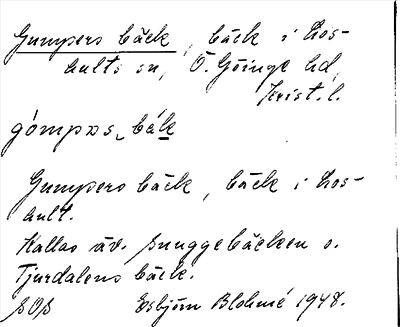 Gumpers bäck, bäck i Los-
hults sn, Ö. Göinge hd,
Krist. l.
gómpəs bák
Gumpers bäck, bäck i Los-
hult.
Kallas äv. Suggebäcken o.
Tjurdalens bäck.
SOS Esbjörn Blohmé 1948.